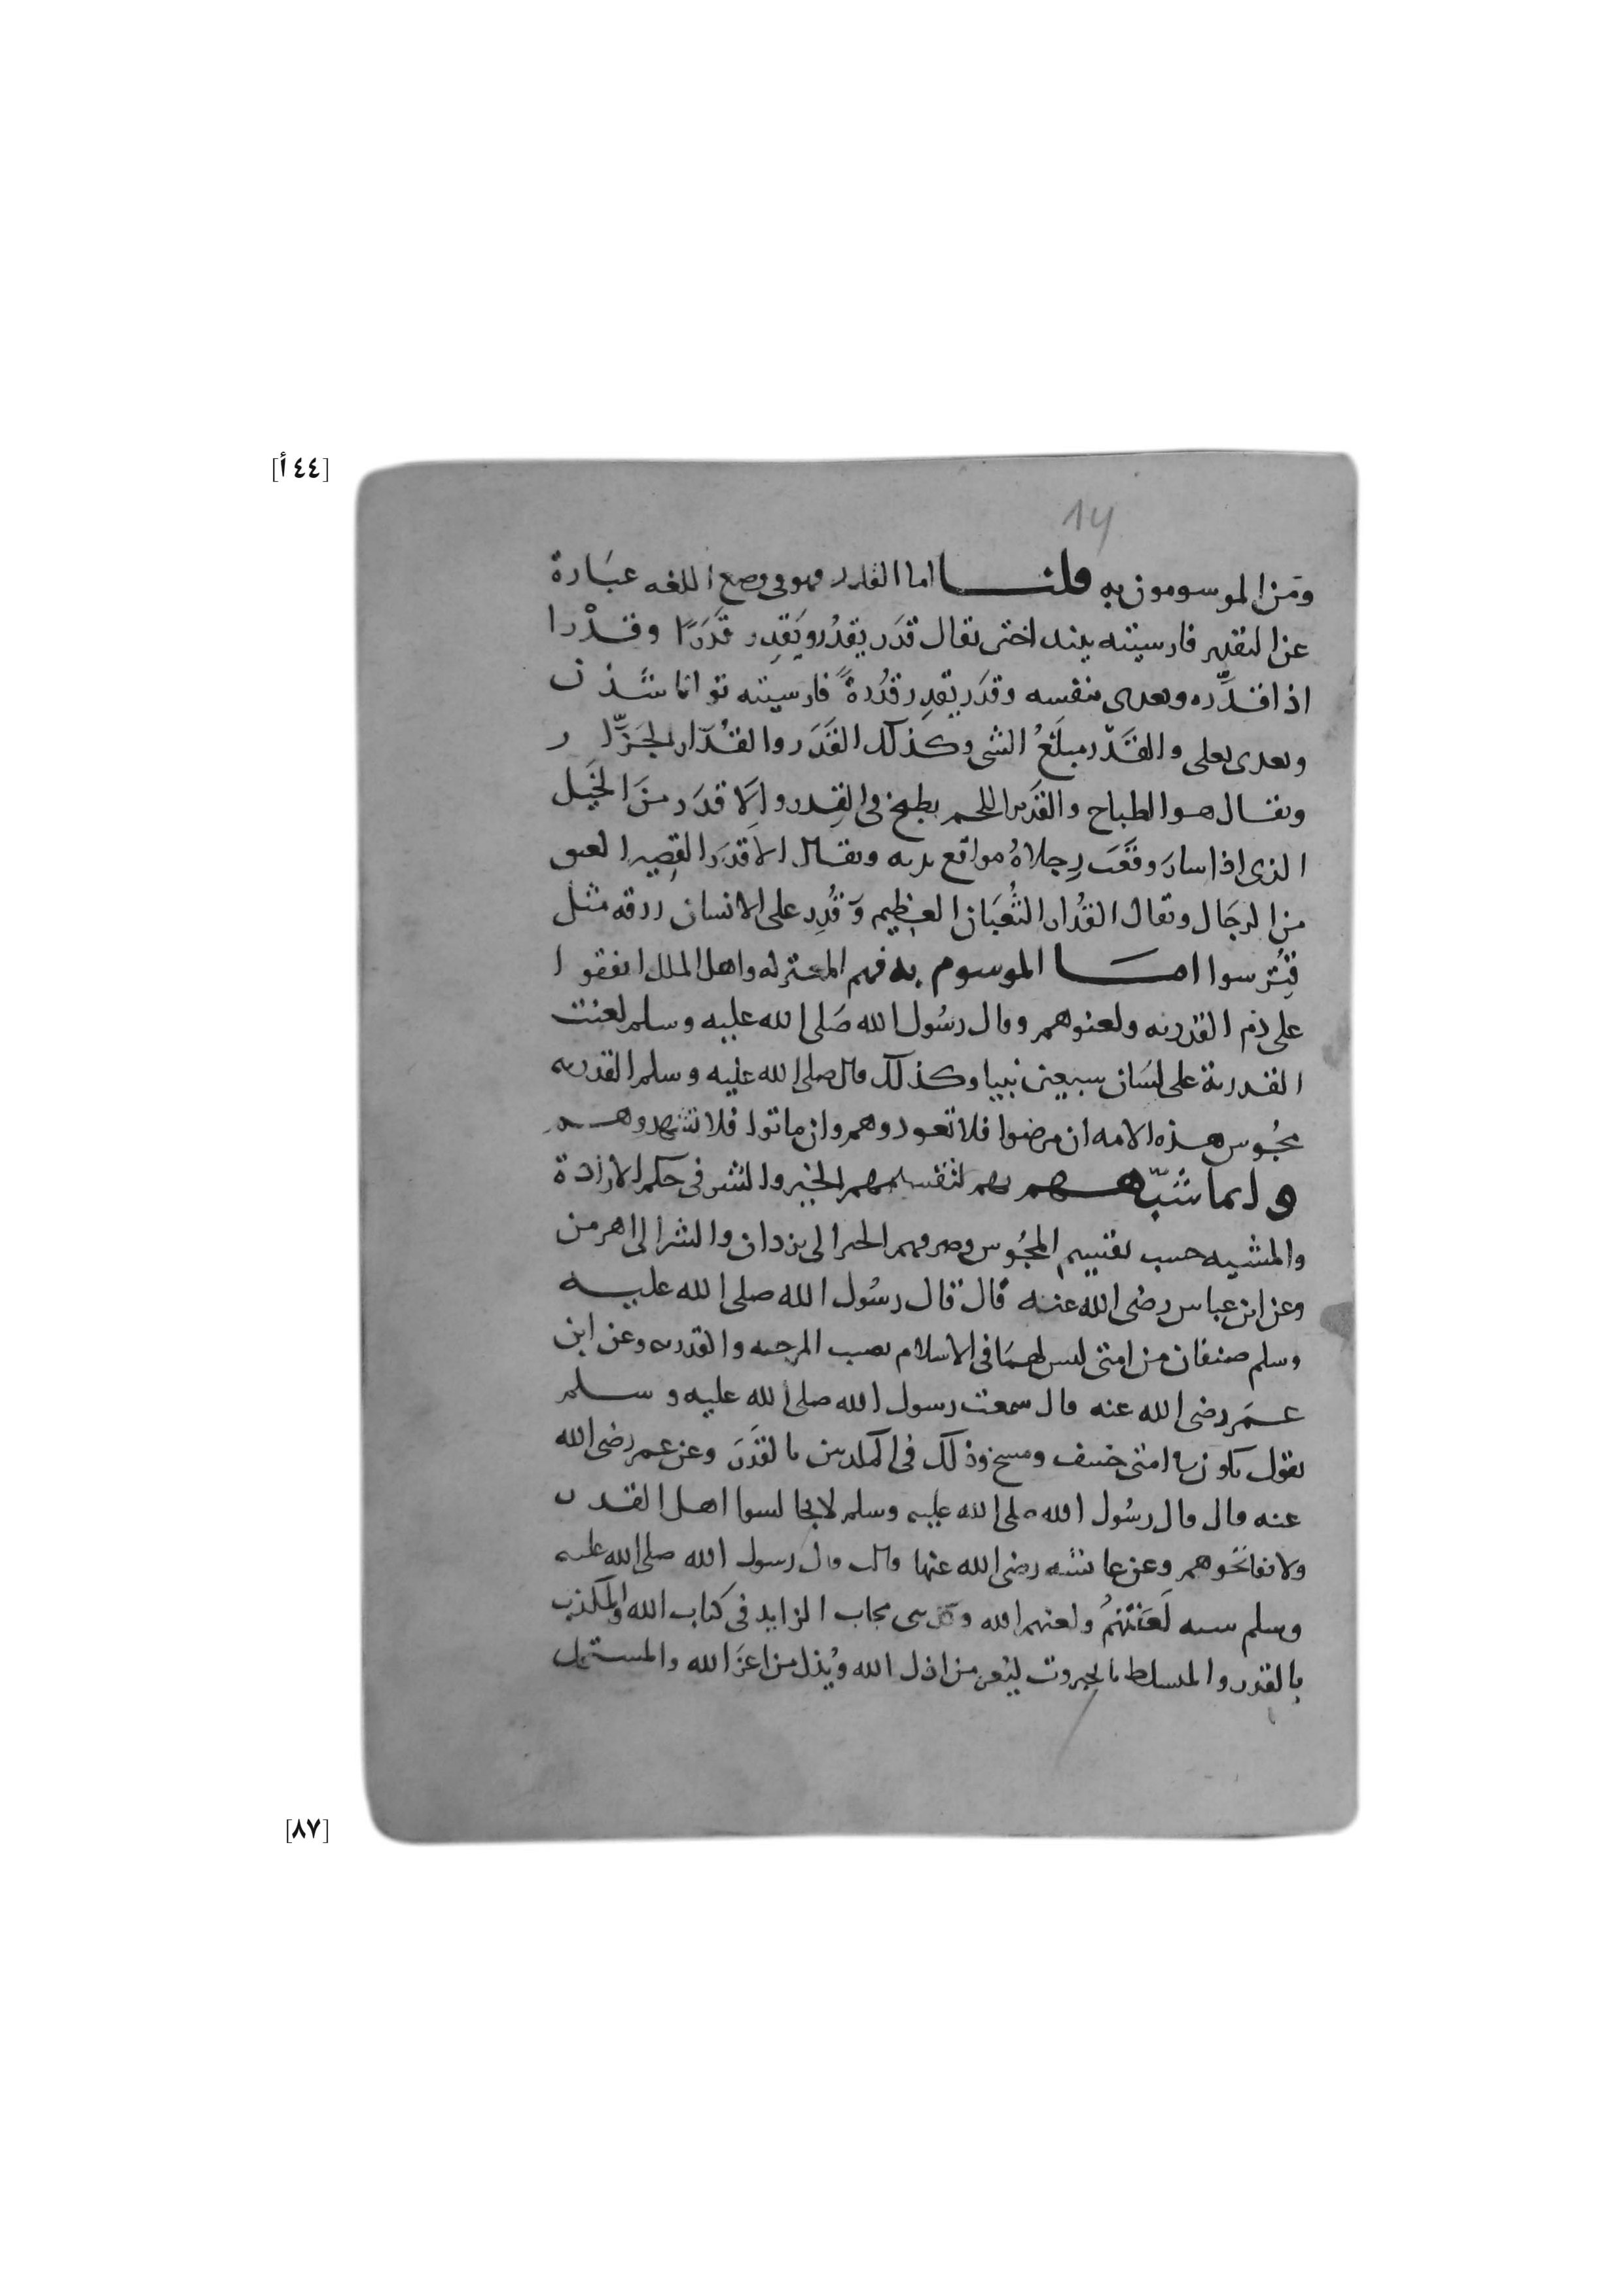 [٤٤ أ]
ومن الموسومون به قلنا اما القدر فهو فى وضع اللغه عبَارة
عن التقدير فارسيته يقال قدَر يقدُر ويَقدِر قَدَرًا وقدْرا
اذا قدَّره وىعدى بنفسه وقدَر يقدِر قدُرةً فارسيته توانا شذن
وىعدى بعلى والقَدْر مبلَغُ الشى وكذلك القَدَر والقُدَار الجَزّار
ويقال هو الطباخ والقَدِير اللحم يطبخ فى القِدر والاَقدَر منَ الخَيل
الذى اذا سارَ وقعَت رِجلاهُ مواقع يديه ويقال الاَقدَر القصِير العنق
من الرجَال ويقال القُدار الثُعبَان العظِيم وَقُدِر على الانسان رزقه مثل
قُتِر سوا امَا الموسوم به فهم المعتزله واهل الملل اتفقوا
على ذم القدريه ولعنوهم وقال رسُول الله صَلى الله عليه وسلم لعنت
القدرية على لسَان سبعين نبيا وكذلك قال صلى الله عليه وسلم القدريه
مجُوس هذه الامه ان مرضوا فلا تعودوهم وان ماتوا فلا تشهدوهم
وانما شبّههم بهم لتقسيمهم الخير والشر فى حكم الارادة
والمشيه حسب تقسيم المجُوس وصرفهم الخير الى يزدان والشر الى اهرمن
وعن ابن عباس رضى الله عنه قال قال رسُول الله صلى الله عليه
وسلم صنفان من امتى ليس لهمَا فى الاسلام نصيب المرجيه والقدريه وعن ابن
عمَر رضى الله عنه قال سمعت رسول الله صلى الله عليه وسلم
يقول يكون فى امتى خسف ومسخ وذلك فى المكذبين بالقَدَر وعن عمر رضى الله
عنه قال قال رسُول الله صلى الله عليه وسلم لا تجالسوا اهل القدر
ولا تفاتحوهم وعن عائشه رضى الله عنها قالت قال رسول الله صلى الله عليه
وسلم سته لَعَنْتُهُم ولعنهم الله وكل نبى مجاب الزايد فى كتاب الله والمكذب
بالقدر والمتسلط بالجبروت ليُعز من اذل الله ويُذل من اعَز الله والمستحل
[٨٧]